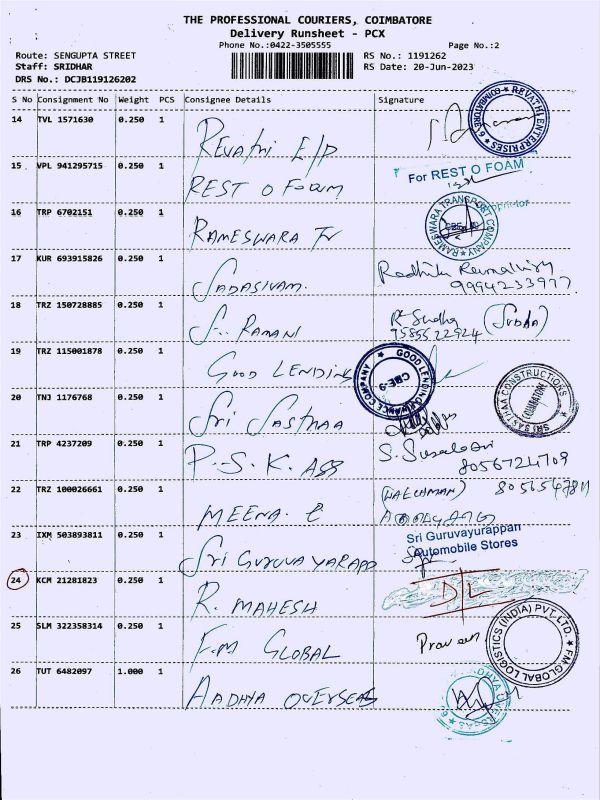 THE PROFESSIONAL COURIERS, COIMBATORE
Delivery Runsheet - PCX
Phone No.:0422-3505555 Page No.:2
Route: SENGUPTA STREET RS No.: 1191262
Staff: SRIDHAR RS Date: 20-Jun-2023
DRS No.: DCJB119126202
S No Consignment No Weight PCS Consignee Details Signature
14 TVL 1571630 0.250 1 REVATHI E/P REVATHI ENTERPRISES COIMBATORE
15 VPL 941295715 0.250 1 REST O FOAM For REST O FOAM
16 TRP 6702151 0.250 1 RAMESWARA Tr RAMESWARA TRANSPORT COMPANY
17 KUR 693915826 0.250 1 SADASIVAM. Radhika 9994233977.
18 TRZ 150728885 0.250 1 S.. RAMANI R. Sudha (SUDHA)
9585522924
19 TRZ 115001878 0.250 1 GOOD LENDING GOOD LENDING COMPANY CBE-9
20 TNJ 1176768 0.250 1 Sri SASTHAA SRI SASTHAA CONSTRUCTIONS COIMBATORE
21 TRP 4237209 0.250 1 P.S.K. ASS S. 8056724709
22 TRZ 100026661 0.250 1 MEENA. C
23 IXM 503893811 0.250 1 Sri GURUVAYARAPP Sri Guruvayurappan
Automobile Stores
24 KCM 21281823 0.250 1 R. MAHESH D/L
25 SLM 322358314 0.250 1 F.M GLOBAL Praveen FM GLOBAL LOGISTICS (INDIA) PVT. LTD.
26 TUT 6482097 1.000 1 AADHYA OVERSEAS